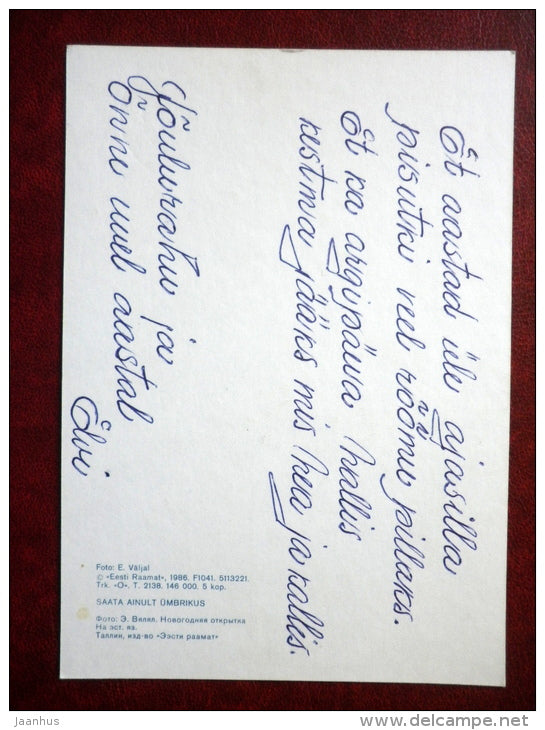 Et aastad üle ajasilla
pisutki veel rõõmu pillaks.
Et ka argipäeva hallis
kestma jääks mis hea ja kallis.
Jõulurahu ja
Õnne uuel aastal
Elvi
Foto: E. Väljal
© «Eesti Raamat», 1986. F1041. 5113221.
Trk. «O». T. 2138. 146 000. 5 kop.
SAATA AINULT ÜMBRIKUS
Фото: Э. Вялял. Новогодняя открытка
На эст. яз.
Таллин, изд-во «Ээсти раамат»
jaanhus
www.delcampe.net